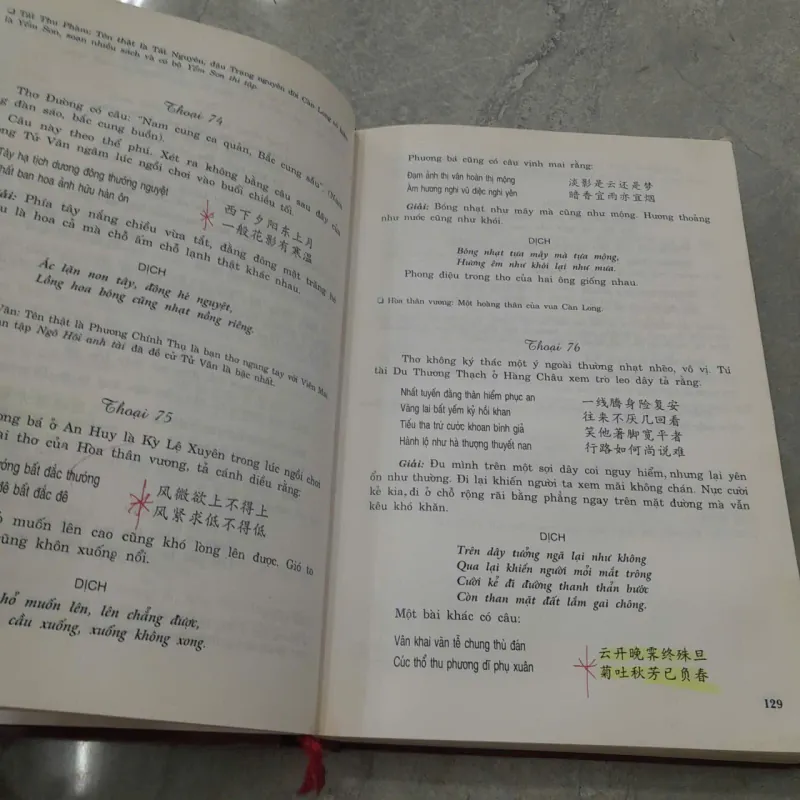 ❑ Tất Thu Phàm: Tên thật là Tất Nguyên, đậu Trạng nguyên đời Càn Long
là Yểm Sơn, soạn nhiều sách và có bộ Yểm Sơn thi tập.
Thoại 74
Thơ Đường có câu: "Nam cung ca quản, Bắc cung sầu" (Nam
đàn sáo, bắc cung buồn).
Câu này theo thể phú. Xét ra không bằng câu sau đây của
Tử Vân ngâm lúc ngồi chơi vào buổi chiều tối.
Tây hạ tịch dương đông thướng nguyệt
hất ban hoa ảnh hữu hàn ôn
西下夕阳东上月
一般花影有寒温
Giải: Phía tây nắng chiều vừa tắt, đằng đông mặt trăng hé
là hoa cả mà chỗ ấm chỗ lạnh thật khác nhau.
DỊCH
Ác lặn non tây, đông hé nguyệt,
Lồng hoa bóng cũng nhạt nồng riêng.
Vân: Tên thật là Phương Chính Thụ là bạn thơ ngang tay với Viên Mai
tập Ngô Hội anh tài đã đề cử Tử Vân là bậc nhất.
Thoại 75
ng bá ở An Huy là Kỳ Lệ Xuyên trong lúc ngồi chơi
ai thơ của Hòa thân vương, tả cánh diều rằng:
ớng bất đắc thướng
đê bất đắc đê
风微欲上不得上
风紧求低不得低
muốn lên cao cũng khó lòng lên được. Gió to
cũng khôn xuống nổi.
DỊCH
hỏ muốn lên, lên chẳng được,
cầu xuống, xuống không xong.
Phương bá cũng có câu vịnh mai rằng:
Đạm ảnh thị vân hoàn thị mộng
Ám hương nghi vũ diệc nghi yên
淡影是云还是梦
暗香宜雨亦宜烟
Giải: Bóng nhạt như mây mà cũng như mộng. Hương thoảng
như nước cũng như khói.
DỊCH
Bóng nhạt tựa mây mà tựa mộng,
Hương êm như khói lại như mưa.
Phong điệu trong thơ của hai ông giống nhau.
❑ Hòa thân vương: Một hoàng thân của vua Càn Long.
Thoại 76
Thơ không ký thác một ý ngoài thường nhạt nhẽo, vô vị. Tú
tài Du Thương Thạch ở Hàng Châu xem trò leo dây tả rằng.
Nhất tuyến đằng thân hiểm phục an
Vãng lai bất yếm kỷ hồi khan
Tiếu tha trứ cước khoan bình giả
Hành lộ như hà thượng thuyết nan
一线腾身险复安
往来不厌几回看
笑他著脚宽平者
行路如何尚说难
Giải: Đu mình trên một sợi dây coi nguy hiểm, nhưng lại yên
ổn như thường. Đi lại khiến người ta xem mãi không chán. Nực cười
kẻ kia, đi ở chỗ rộng rãi bằng phẳng ngay trên mặt đường mà vẫn
kêu khó khăn.
DỊCH
Trên dây tưởng ngã lại như không
Qua lại khiến người mỏi mắt trông
Cười kẻ đi đường thanh thản bước
Còn than mặt đất lắm gai chông.
Một bài khác có câu:
Vân khai vãn tễ chung thù đán
Cúc thổ thu phương dĩ phụ xuân
云开晚霁终殊旦
菊吐秋芳已负春
129